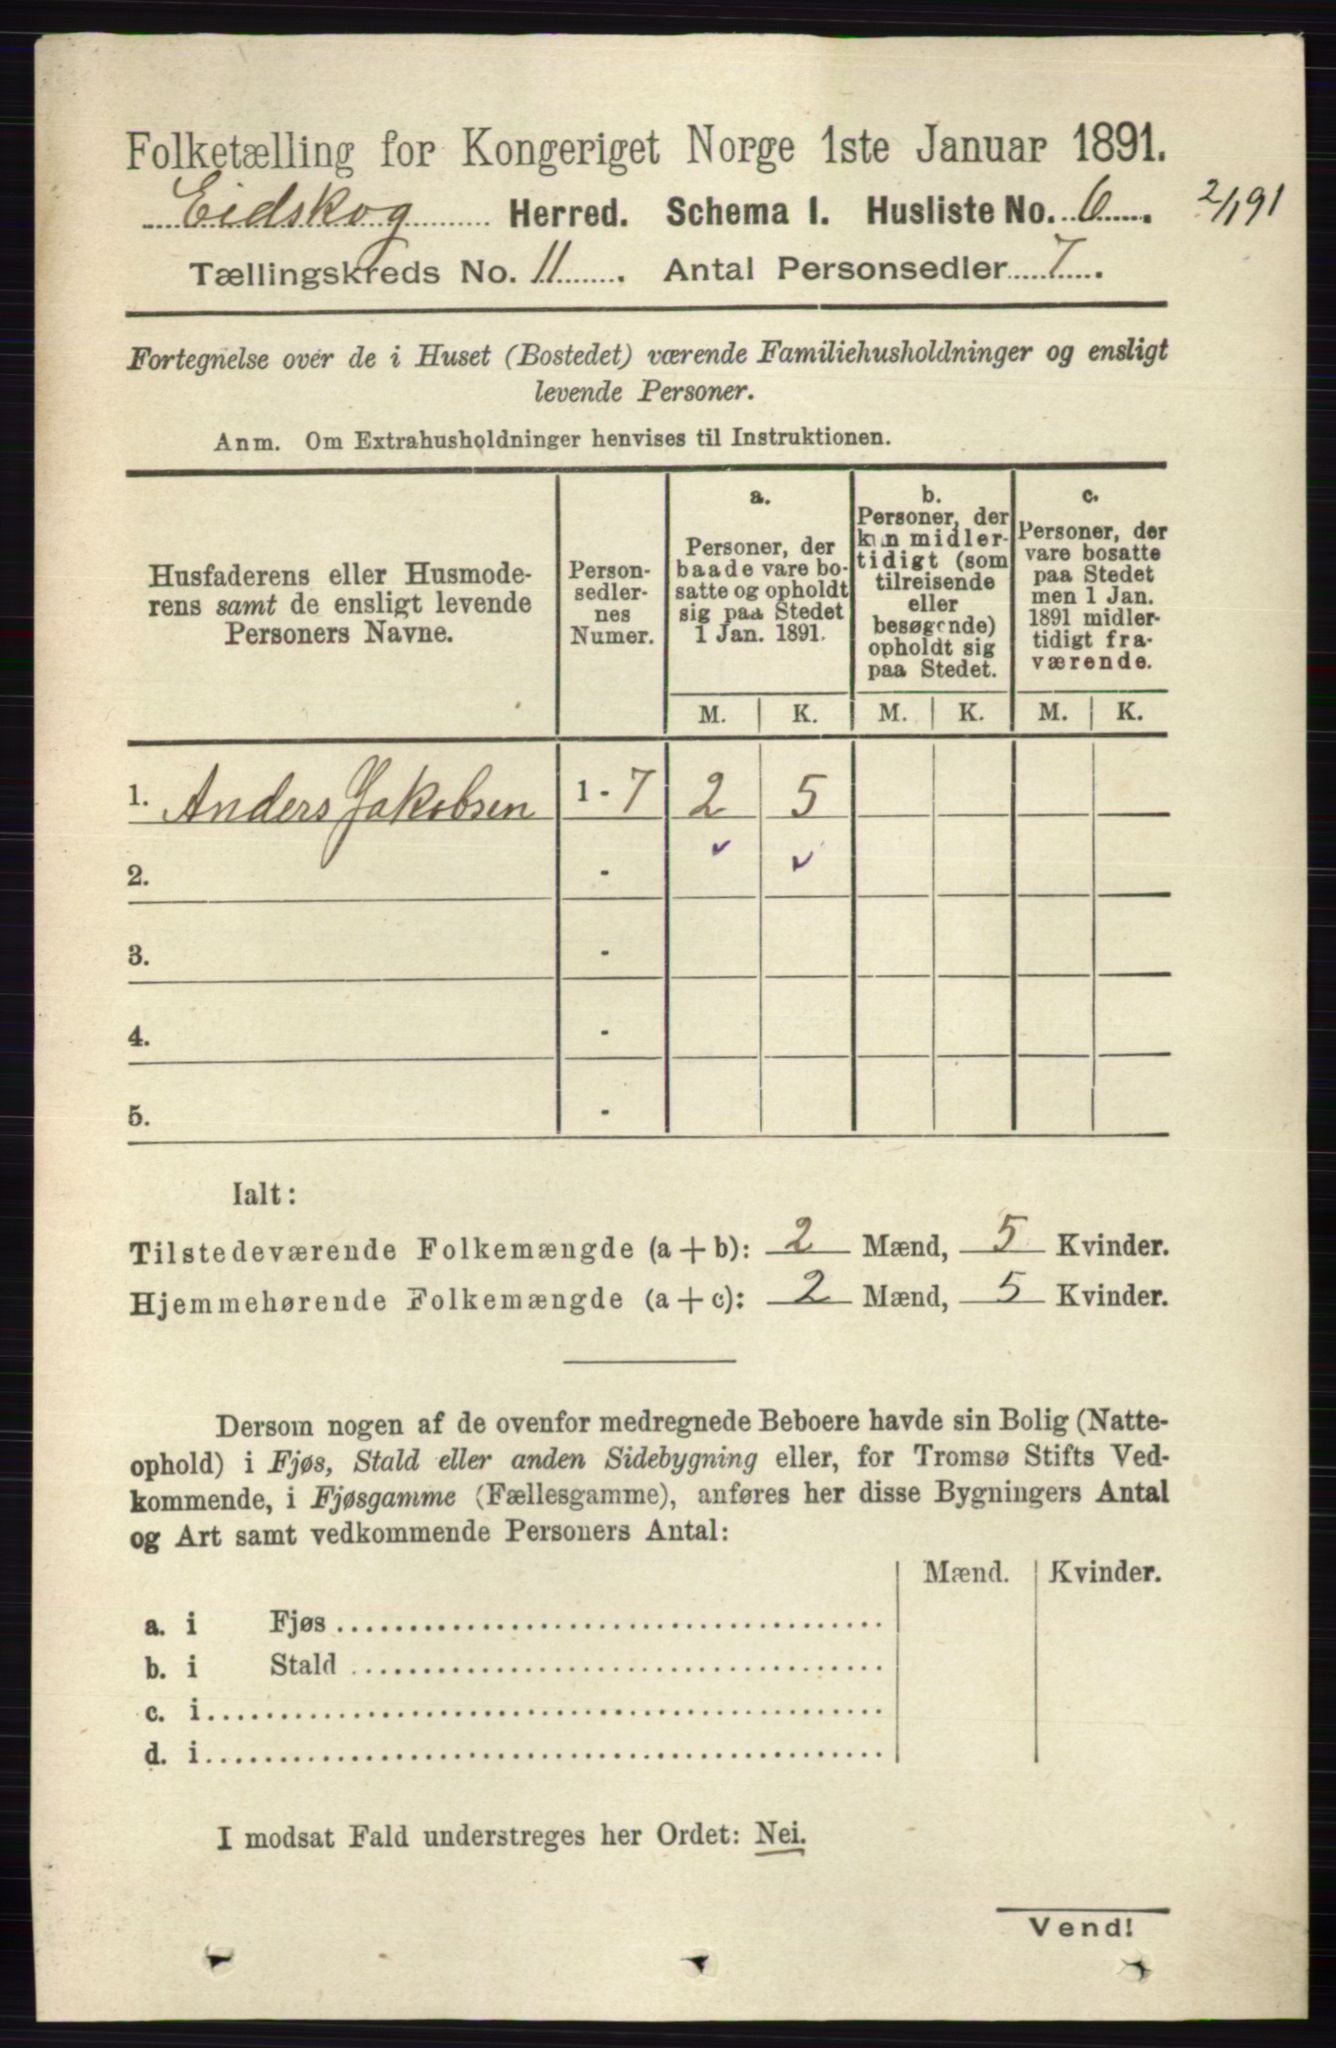 Folketælling for Kongeriget Norge 1ste Januar 1891.
Eidskog Herred. Schema 1. Husliste No. 6. 2/1 91
Tællingskreds No. 11. Antal Personsedler 7.
Fortegnelse over de i Huset (Bostedet) værende Familiehusholdninger og ensligt
levende Personer.
Anm. Om Extrahusholdninger henvises til Instruktionen.
Husfaderens eller Husmode-
rens samt de ensligt levende
Personers Navne.
Person-
sedler-
nes
Numer.
a.
Personer, der
baade vare bo-
satte og opholdt
sig paa Stedet
1 Jan. 1891.
b.
Personer, der
kun midler-
tidigt (som
tilreisende
eller
besøgende)
opholdt sig
paa Stedet.
c.
Personer, der
vare bosatte
paa Stedet
men 1 Jan.
1891 midler-
tidigt fra-
værende.
M. K. M. K. M. K.
1. Anders Jakobsen 1 - 7 2 5
2. -
3. -
4. -
5. -
Ialt:
Tilstedeværende Folkemængde (a + b): 2 Mænd, 5 Kvinder.
Hjemmehørende Folkemængde (a + c): 2 Mænd, 5 Kvinder.
Dersom nogen af de ovenfor medregnede Beboere havde sin Bolig (Natte-
ophold) i Fjøs, Stald eller anden Sidebygning eller, for Tromsø Stifts Ved-
kommende, i Fjøsgamme (Fællesgamme), anføres her disse Bygningers Antal
og Art samt vedkommende Personers Antal:
Mænd. Kvinder.
a. i Fjøs
b. i Stald
c. i
d. i
I modsat Fald understreges her Ordet: Nei.
Vend!